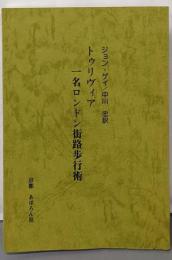 ジョン・ゲイ/中川 忠訳
トゥリヴィア
一名ロンドン街路歩行術
京都 あぽろん社